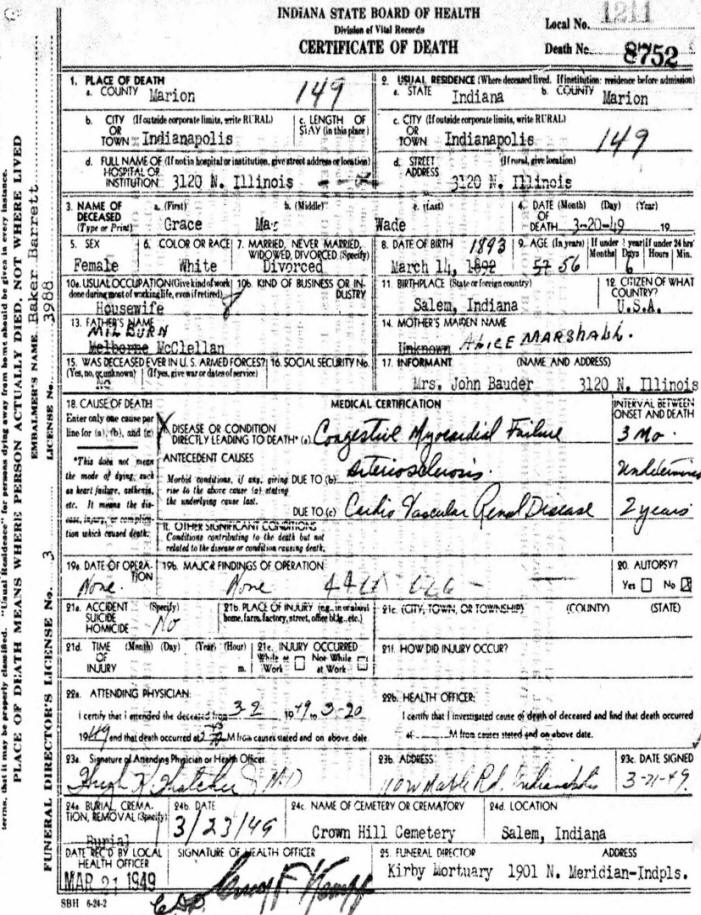 INDIANA STATE BOARD OF HEALTH
Division of Vital Records
CERTIFICATE OF DEATH
Local No. 1211
Death No. 8752
1. PLACE OF DEATH
a. COUNTY Marion 149
2. USUAL RESIDENCE (Where deceased lived. If institution: residence before admission)
a. STATE Indiana b. COUNTY Marion
b. CITY (If outside corporate limits, write RURAL) OR TOWN Indianapolis
c. LENGTH OF STAY (in this place)
c. CITY (If outside corporate limits, write RURAL) OR TOWN Indianapolis 149
d. FULL NAME OF (If not in hospital or institution, give street address or location) HOSPITAL OR INSTITUTION 3120 N. Illinois
d. STREET ADDRESS (If rural, give location) 3120 N. Illinois
3. NAME OF DECEASED (Type or Print) a. (First) Grace b. (Middle) Mae c. (Last) Wade
4. DATE OF DEATH (Month) (Day) (Year) 3-20-49 19
5. SEX Female
6. COLOR OR RACE White
7. MARRIED, NEVER MARRIED, WIDOWED, DIVORCED (Specify) Divorced
8. DATE OF BIRTH 1893 March 14, 1892
9. AGE (In years) 57 56 If under 1 year Months Days 6 If under 24 hrs Hours Min.
10a. USUAL OCCUPATION (Give kind of work done during most of working life, even if retired) Housewife
10b. KIND OF BUSINESS OR INDUSTRY
11. BIRTHPLACE (State or foreign country) Salem, Indiana
12. CITIZEN OF WHAT COUNTRY? U.S.A.
13. FATHER'S NAME MILBURN Melborne McClellan
14. MOTHER'S MAIDEN NAME Unknown ALICE MARSHALL.
15. WAS DECEASED EVER IN U. S. ARMED FORCES? (Yes, no, or unknown) (If yes, give war or dates of service) No
16. SOCIAL SECURITY No.
17. INFORMANT (NAME AND ADDRESS) Mrs. John Bauder 3120 N. Illinois
18. CAUSE OF DEATH
Enter only one cause per line for (a), (b), and (c)
*This does not mean the mode of dying, such as heart failure, asthenia, etc. It means the disease, injury, or complication which caused death.
MEDICAL CERTIFICATION
INTERVAL BETWEEN ONSET AND DEATH
I. DISEASE OR CONDITION DIRECTLY LEADING TO DEATH* (a) Congestive Myocardial Failure 3 Mo.
ANTECEDENT CAUSES
Morbid conditions, if any, giving rise to the above cause (a) stating the underlying cause last.
DUE TO (b) Arteriosclerosis. Undetermined
DUE TO (c) Cardio Vascular Renal Disease 2 years
II. OTHER SIGNIFICANT CONDITIONS
Conditions contributing to the death but not related to the disease or condition causing death.
19a. DATE OF OPERATION None.
19b. MAJOR FINDINGS OF OPERATION None
20. AUTOPSY? Yes No
21a. ACCIDENT SUICIDE HOMICIDE (Specify) No
21b. PLACE OF INJURY (e.g., in or about home, farm, factory, street, office bldg., etc.)
21c. (CITY, TOWN, OR TOWNSHIP) (COUNTY) (STATE)
21d. TIME OF INJURY (Month) (Day) (Year) (Hour) m.
21e. INJURY OCCURRED While at Work Not While at Work
21f. HOW DID INJURY OCCUR?
22a. ATTENDING PHYSICIAN:
I certify that I attended the deceased from 3-2 1949 to 3-20
1949 and that death occurred at M from causes stated and on above date.
22b. HEALTH OFFICER:
I certify that I investigated cause of death of deceased and find that death occurred at M from causes stated and on above date.
23a. Signature of Attending Physician or Health Officer Hugh K Thatcher J MD
23b. ADDRESS
23c. DATE SIGNED 3-21-49.
24a. BURIAL, CREMATION, REMOVAL (Specify) Burial
24b. DATE 3/23/49
24c. NAME OF CEMETERY OR CREMATORY Crown Hill Cemetery
24d. LOCATION Salem, Indiana
DATE REC'D BY LOCAL HEALTH OFFICER MAR 21 1949
SIGNATURE OF HEALTH OFFICER
25. FUNERAL DIRECTOR ADDRESS
Kirby Mortuary 1901 N. Meridian-Indpls.
SBH 6-24-2
terms, that it may be properly classified. "Usual Residence" for persons dying away from home should be given in every instance.
PLACE OF DEATH MEANS WHERE PERSON ACTUALLY DIED, NOT WHERE LIVED
EMBALMER'S NAME Baker Barrett
FUNERAL DIRECTOR'S LICENSE No. 3 LICENSE No. 3988